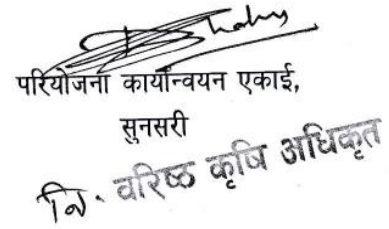 परियोजना कार्यान्वयन एकाई,
सुनसरी
नि. वरिष्ठ कृषि अधिकृत